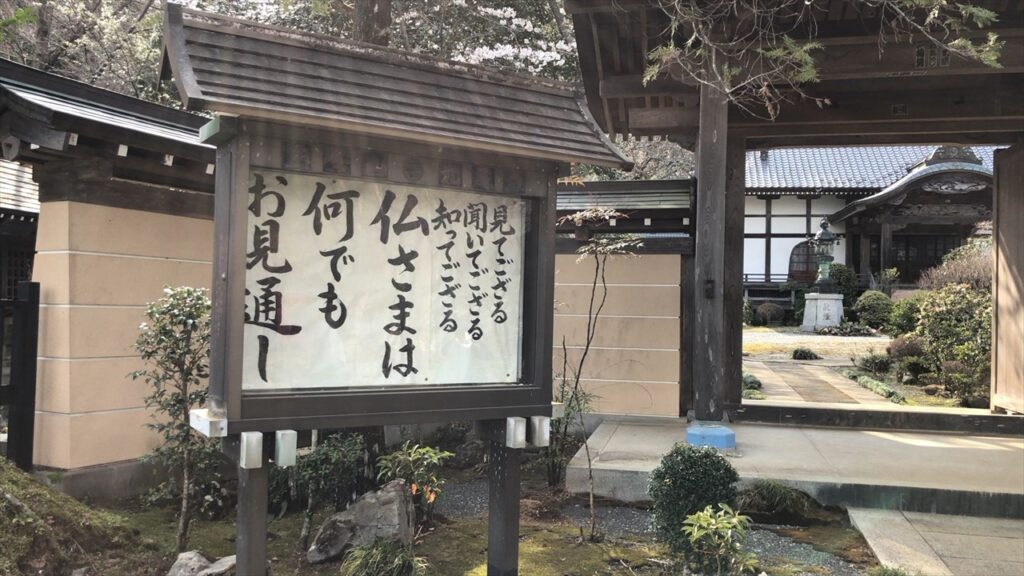 見てござる
聞いてござる
知ってござる
仏さまは
何でも
お見通し